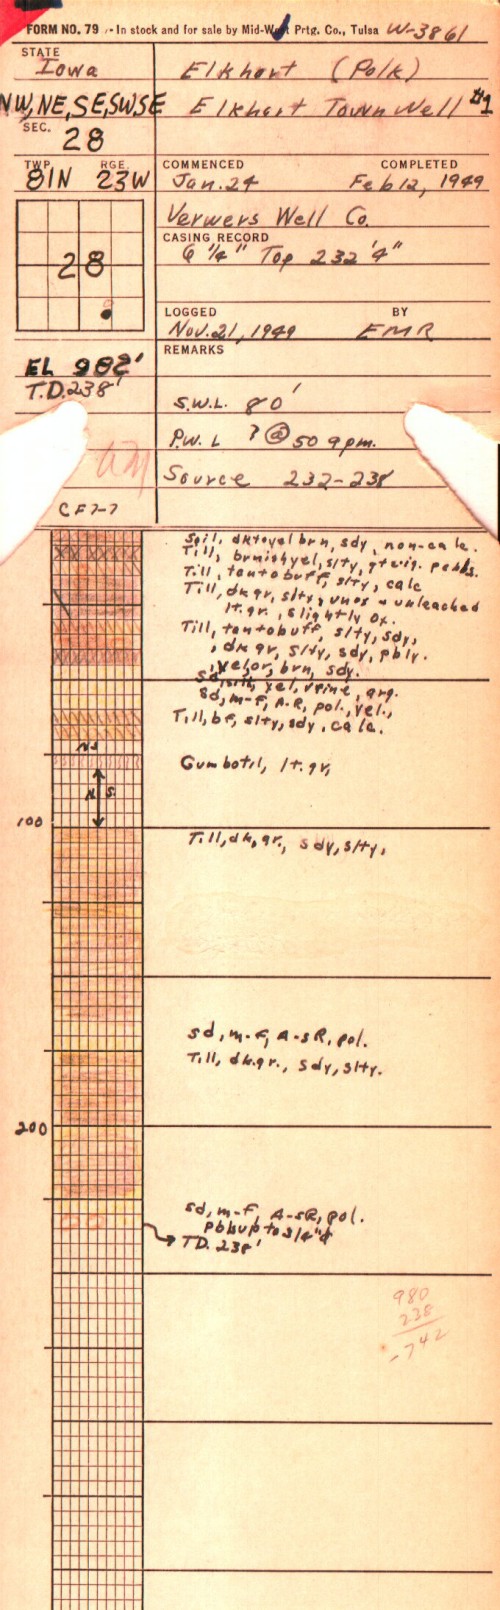 FORM NO. 79 - In stock and for sale by Mid-West Prtg. Co., Tulsa W-3861
STATE
Iowa Elkhart (Polk)
NW, NE, SE, SW, SE Elkhart Town Well #1
SEC.
28
TWP. RGE. COMMENCED COMPLETED
81N 23W Jan. 24 Feb 12, 1949
Verwers Well Co.
CASING RECORD
6 1/4" Top 232'4"
28
LOGGED BY
Nov. 21, 1949 EMR
REMARKS
EL 982'
T.D. 238'
S.W.L. 80'
P.W.L ? @ 50 gpm.
Source 232-238
CF7-7
Soil, dk to yel brn, sdy, non-calc.
Till, brnish yel, slty, pebs.
Till, tan to buff, slty, calc
Till, dk gr, slty, unox + unleached
lt. gr., slightly ox.
Till, tan to buff, slty, sdy,
, dk gr, slty, sdy, pbly.
, yelor, brn, sdy.
sd, silt, yel, vfine, arg.
sd, m-f, A-R, pol., yel.,
Till, bf, slty, sdy, calc.
NS
Gumbotil, lt. gr,
N.S.
100
Till, dk, gr., sdy, slty,
sd, m-f, A-sR, pol.
Till, dk.gr., sdy, slty.
200
sd, m-f, A-sR, pol.
pbls up to 3/4"
TD. 238'
980
238
-742